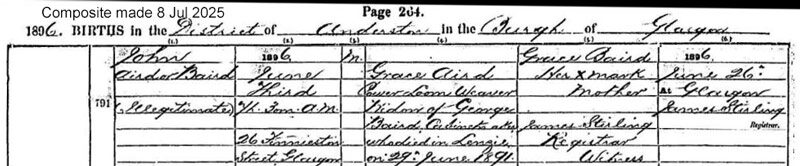 Composite made 8 Jul 2025
Page 264.
1896. BIRTHS in the District of Anderston in the Burgh of Glasgow
(1.) (2.) (3.) (4.) (5.) (6.)
791
John
Aird or Baird
(Illegitimate)
1896
June
Third
3h. 30m. A.M.
26 Finnieston
Street, Glasgow
M.
Grace Aird
Power Loom Weaver
Widow of George
Baird, Cabinetmaker
who died in Lenzie
on 29th June 1891.
Grace Baird
Her x mark
Mother
James Stirling
Registrar
Witness
1896
June 26th
At Glasgow
James Stirling
Registrar.